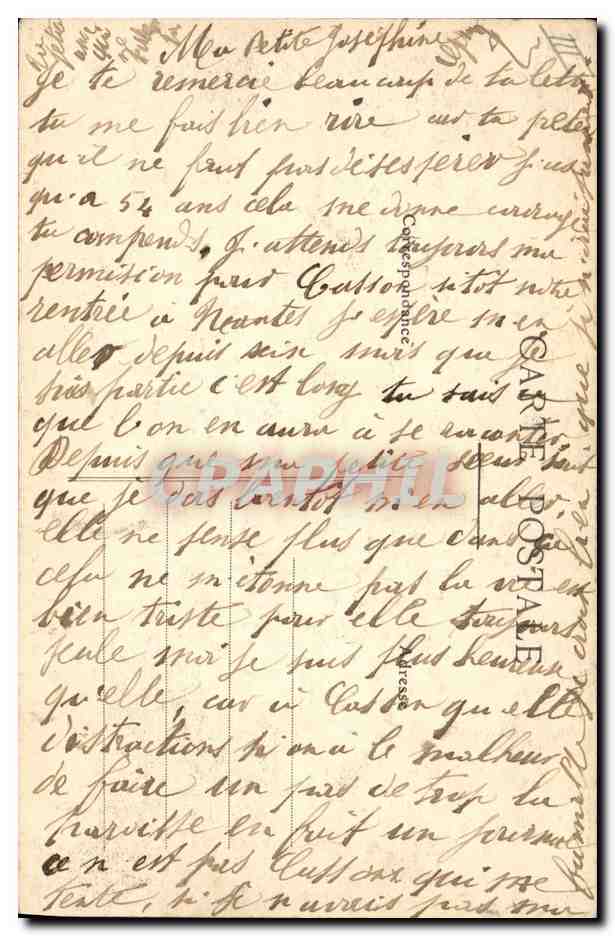 Ma Petite Joséphine
Je te remercie beaucoup de ta lettre
tu me fais bien rire car ta
qu'il ne faut pas désespérer jus
qu'a 54 ans cela me donne courage
tu comprends, J'attends toujours ma
permision pour Casson sitôt notre
rentrée à Nantes J'espère m'en
aller depuis six mois que je
suis partie c'est long tu sais
que l'on en aura à se raconter
Depuis que ma petite sœur sait
que je dois bientôt m'en aller,
elle ne pense plus que dans
cela ne m'étonne pas la vie est
bien triste pour elle toujours
seule moi je suis plus heureuse
qu'elle, car à Casson quelle
distractions si on a le malheur
de faire un pas de trop la
paroisse en fait un journal
ce n'est pas Casson qui me
tente, si je n'avais pas ma
famille je crois bien que
III
CARTE POSTALE
Correspondance
Adresse
CPAPHIL